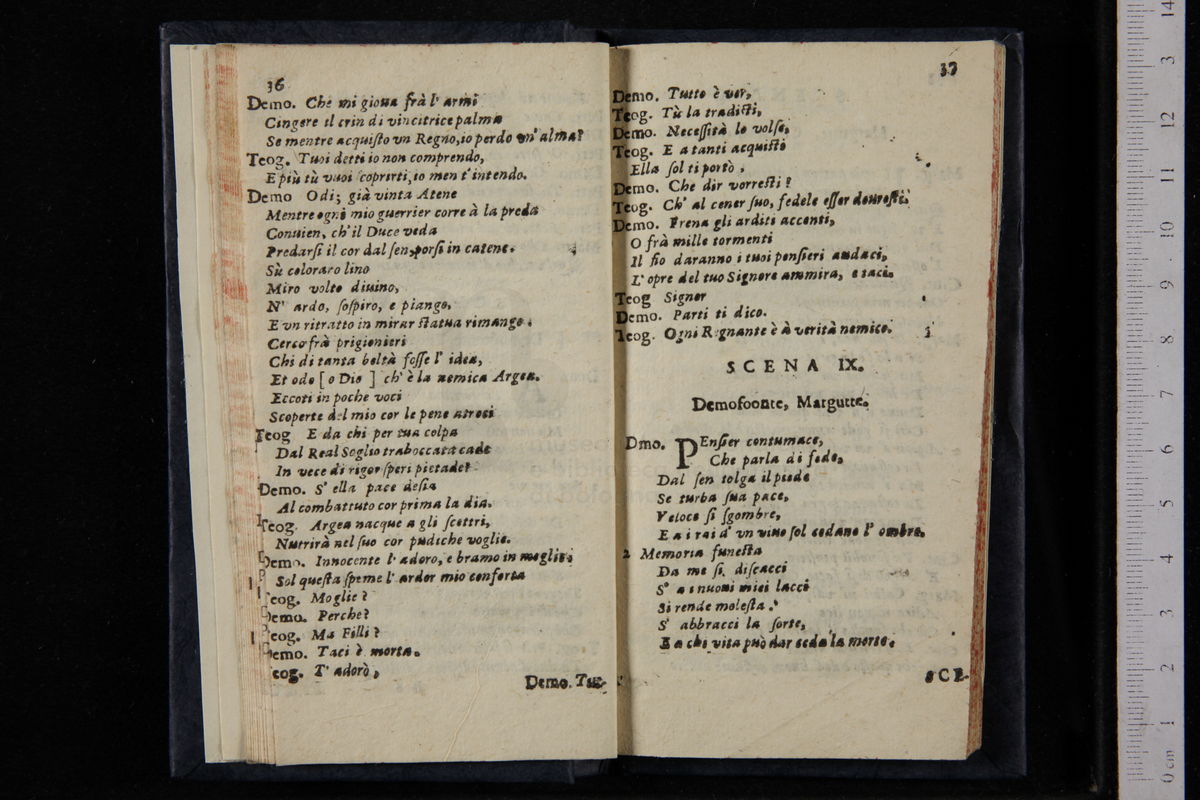 36
Demo. Che mi gioua frà l' armi
Cingere il crin di vincitrice palma
Se mentre acquiſto vn Regno, io perdo vn' alma?
Teog. Tuoi detti io non comprendo,
E più tù vuoi coprirti, io men t' intendo.
Demo Odi; già vinta Atene
Mentre ogni mio guerrier corre à la preda
Conuien, ch' il Duce veda
Predarſi il cor dal ſen, porſi in catene.
Sù coloraro lino
Miro volto diuino,
N' ardo, ſoſpiro, e piango,
E vn ritratto in mirar ſtatua rimango.
Cerco frà prigionieri
Chi di tanta beltà foſſe l' idea,
Et odo [ o Dio ] ch' è la nemica Argea.
Eccoti in poche voci
Scoperte del mio cor le pene atroci
Teog E da chi per tua colpa
Dal Real Soglio traboccata cade
In vece di rigor ſperi pietade?
Demo. S' ella pace deſia
Al combattuto cor prima la dia.
Teog. Argea nacque a gli ſcettri,
Nutrirà nel ſuo cor pudiche voglie.
Demo. Innocente l' adoro, e bramo in moglie;
Sol queſta ſpeme l' ardor mio conforta
Teog. Moglie?
Demo. Perche?
Teog. Ma Filli?
Demo. Taci è morta.
Teog. T' adorò,
Demo. Tut-
37
Demo. Tutto è ver,
Teog. Tù la tradiſti,
Demo. Neceſſità lo volſe,
Teog. E a tanti acquiſti
Ella ſol ti portò,
Demo. Che dir vorreſti?
Teog. Ch' al cener ſuo, fedele eſſer doureſti.
Demo. Frena gli arditi accenti,
O frà mille tormenti
Il fio daranno i tuoi penſieri audaci,
L' opre del tuo Signore ammira, e taci.
Teog Signor
Demo. Parti ti dico.
Teog. Ogni Regnante è à verità nemico.
SCENA IX.
Demofoonte, Margutte.
Dmo. PEnſier contumace,
Che parla di fede,
Dal ſen tolga il piede
Se turba ſua pace,
Veloce ſi ſgombre,
E a i rai d' vn viuo ſol cedano l' ombre.
2 Memoria funeſta
Da me ſi diſcacci
S' a i nuoui miei lacci
Si rende moleſta.
S' abbracci la ſorte,
E a chi vita può dar ceda la morte.
SCE-